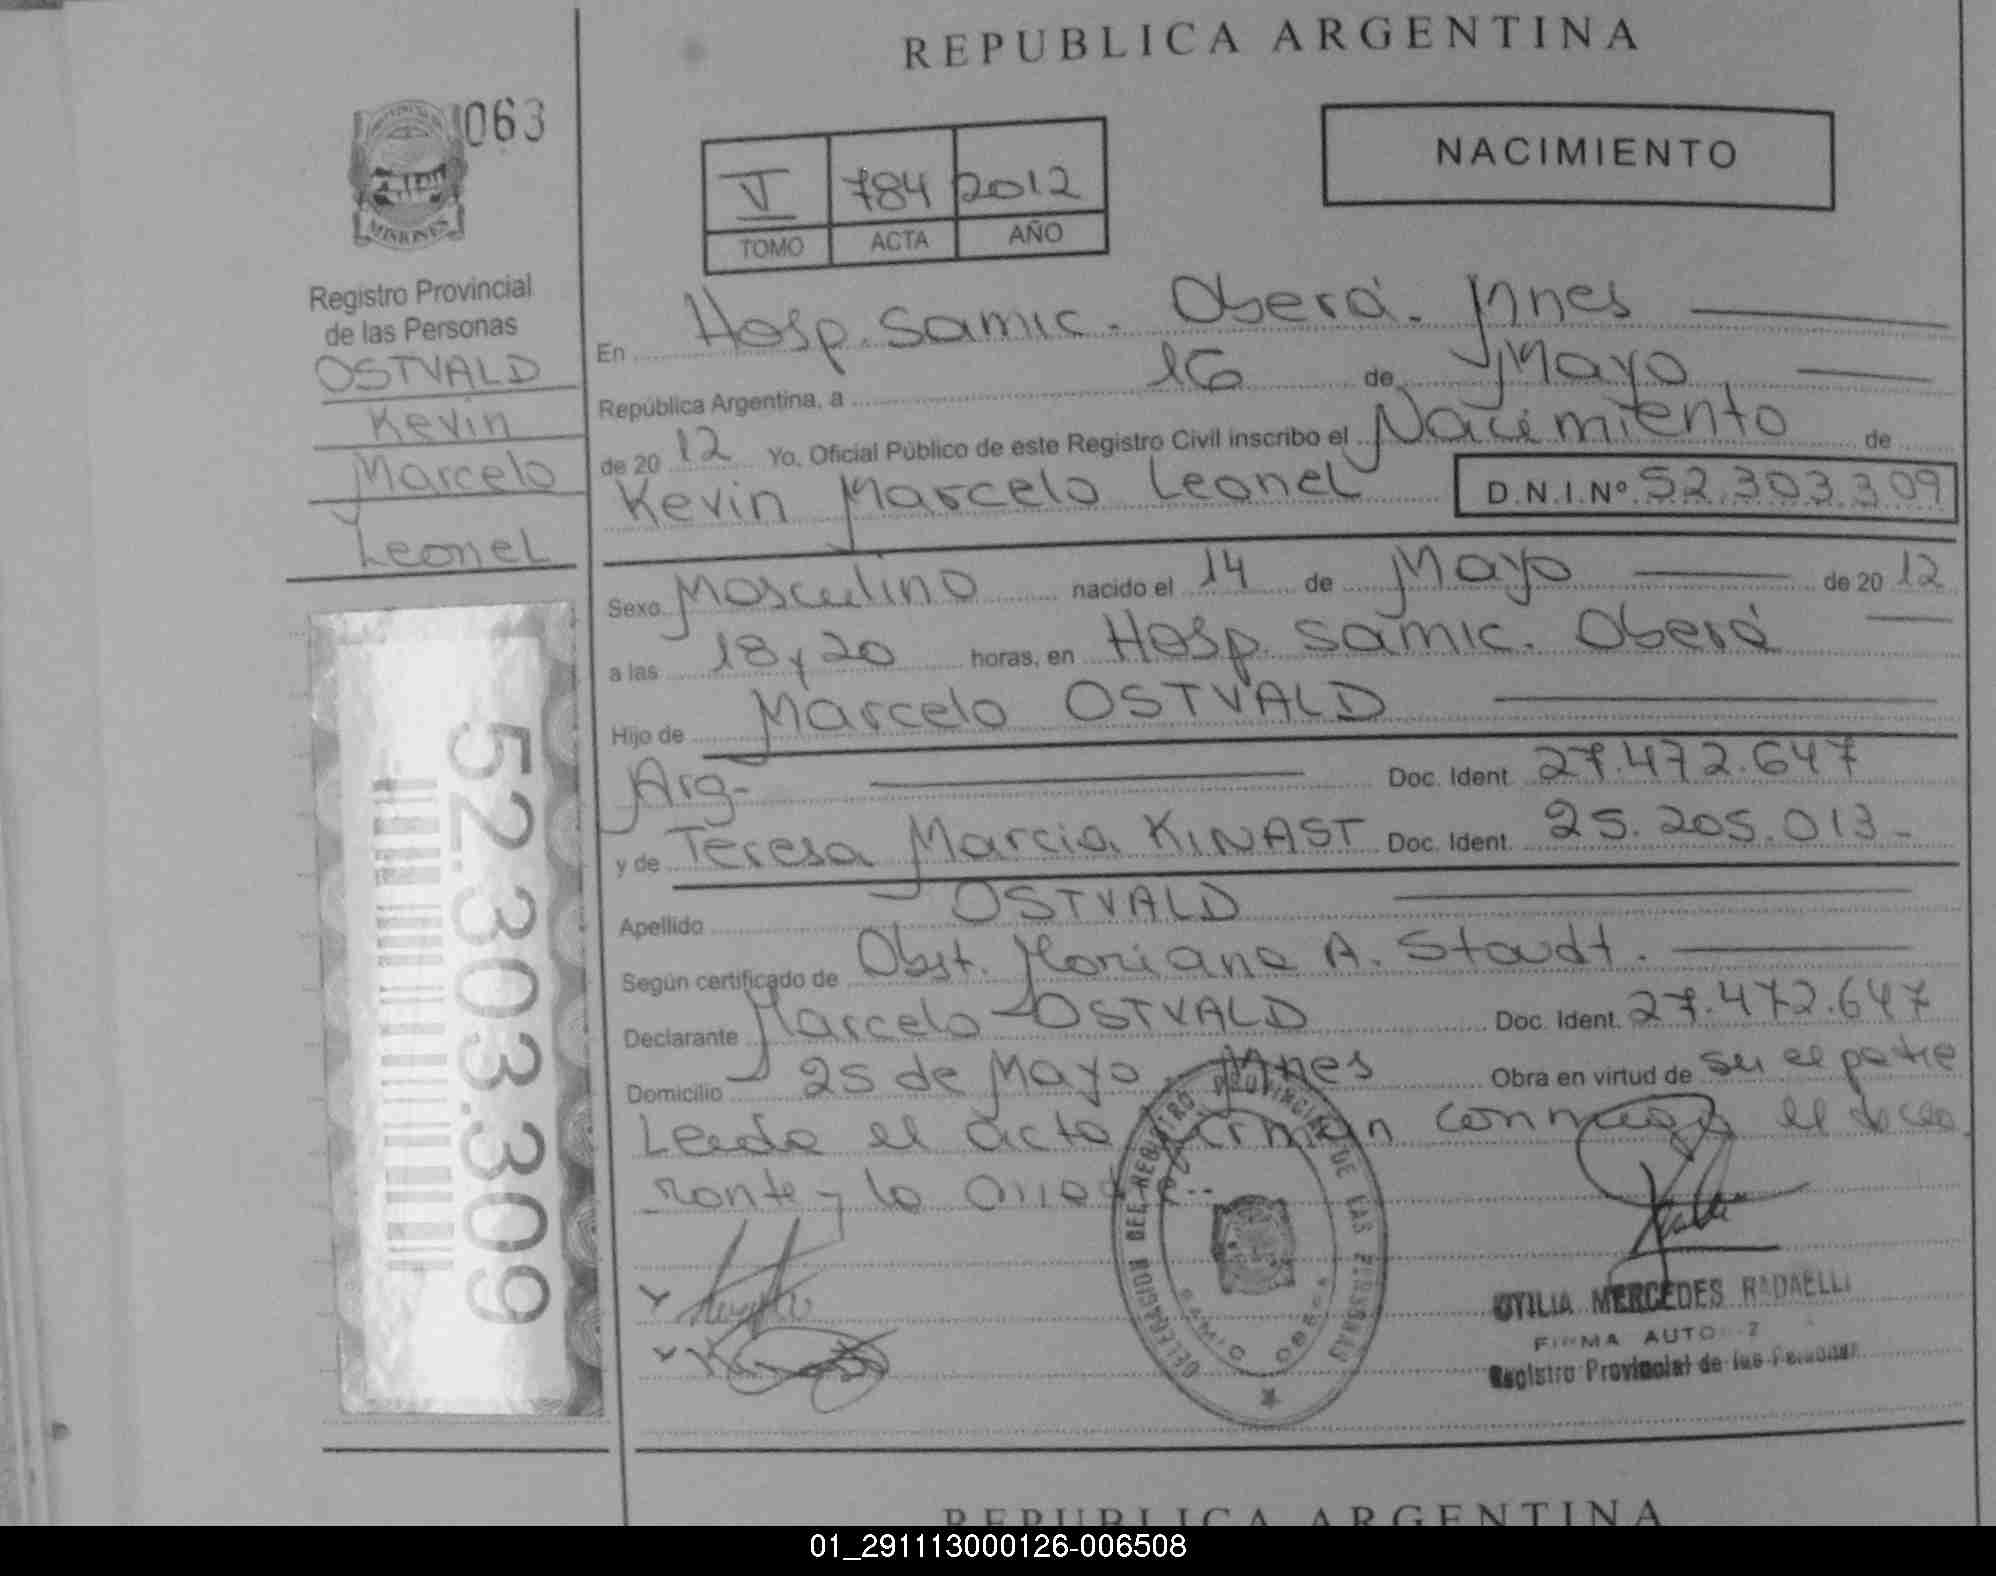 REPUBLICA ARGENTINA
063
MISIONES
NACIMIENTO
V 784 2012
TOMO ACTA AÑO
Registro Provincial
de las Personas
OSTVALD
Kevin
Marcelo
Leonel
52.303.309
En Hosp. Samic. Oberá. Mnes
República Argentina, a 16 de Mayo
de 20 12 Yo, Oficial Público de este Registro Civil inscribo el Nacimiento de
Kevin Marcelo Leonel D.N.I.Nº 52.303.309
Sexo Masculino nacido el 14 de Mayo de 20 12
a las 18 y 20 horas, en Hosp. Samic. Oberá
Hijo de Marcelo OSTVALD
Arg- Doc. Ident. 27.472.647
y de Teresa Marcia KINAST Doc. Ident. 25.205.013-
Apellido OSTVALD
Según certificado de Obst. Mariana A. Staudt.
Declarante Marcelo OSTVALD Doc. Ident. 27.472.647
Domicilio 25 de Mayo. Mnes Obra en virtud de ser el padre
Leida el acta firman conmigo el decla
rante y la
DELEGACION DEL REGISTRO PROVINCIAL DE LAS PERSONAS
SAMIC OBERA
OTILIA MERCEDES RADAELLI
FIRMA AUTORIZ
Registro Provincial de las Personas
REPUBLICA ARGENTINA
01_291113000126-006508